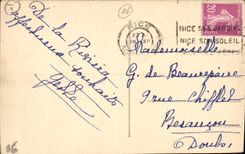 De la Riviera
affectueux souhaits
NICE
NICE SES JARDINS
NICE SON SOLEIL
20
Mademoiselle
G. de Beaurepaire
9 rue Chifflet
Besançon
Doubs
06